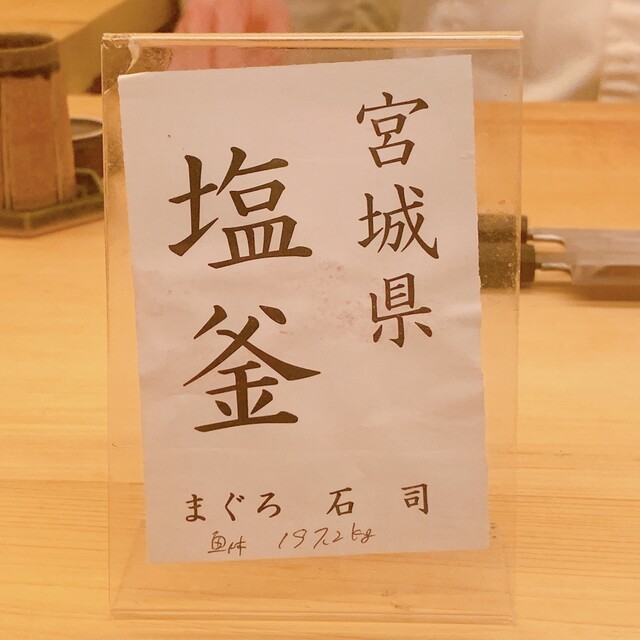 宮城県
塩釜
まぐろ 石司
魚体 197.2kg